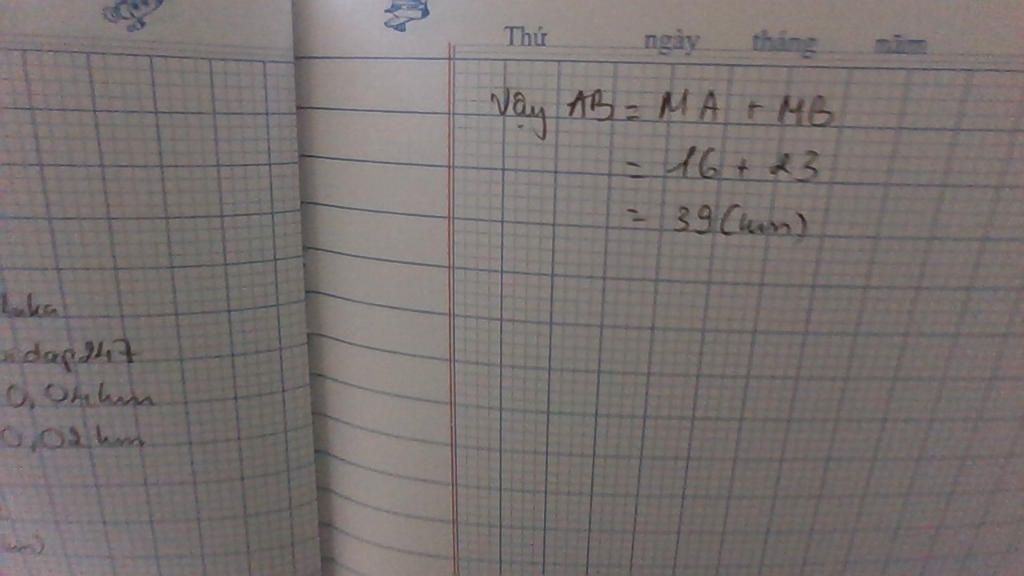 Thứ ngày tháng năm
Vậy AB = MA + MB
= 16 + 23
= 39 (km)
dap247
0,04km
0,02km